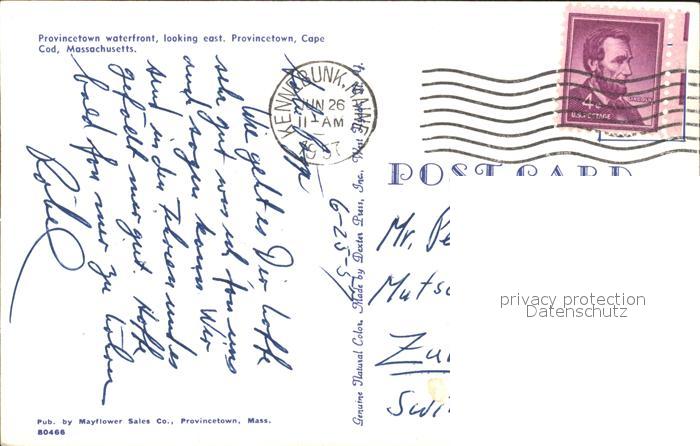 Provincetown waterfront, looking east. Provincetown, Cape
Cod, Massachusetts.
KENNEBUNK, MAINE
JUN 26
11 - AM
1957
4¢
U.S. POSTAGE
POST CARD
6-25-57
Wie geht es Dir hoffe
sehr gut was ich von uns
auch sagen kann Wir
sind in den Ferien und es
gefällt mir gut. Hoffe
bald von mir zu hören
Röbel
Genuine Natural Color. Made by Dexter Press, Inc., West Nyack, N. Y.
Mr. Pe
Mutsc
Zu
Swi
privacy protection
Datenschutz
Pub. by Mayflower Sales Co., Provincetown, Mass.
80466